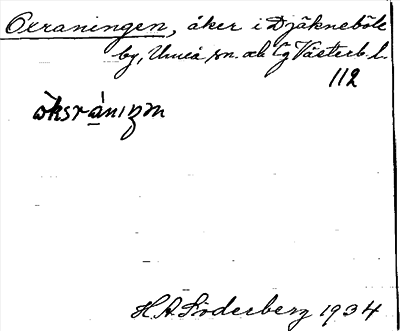 Oxraningen, åker i Djäkneböle
by, Umeå sn. och lg Västerb. l.
112
òksránıŋɐn
H. A. Söderberg 1934